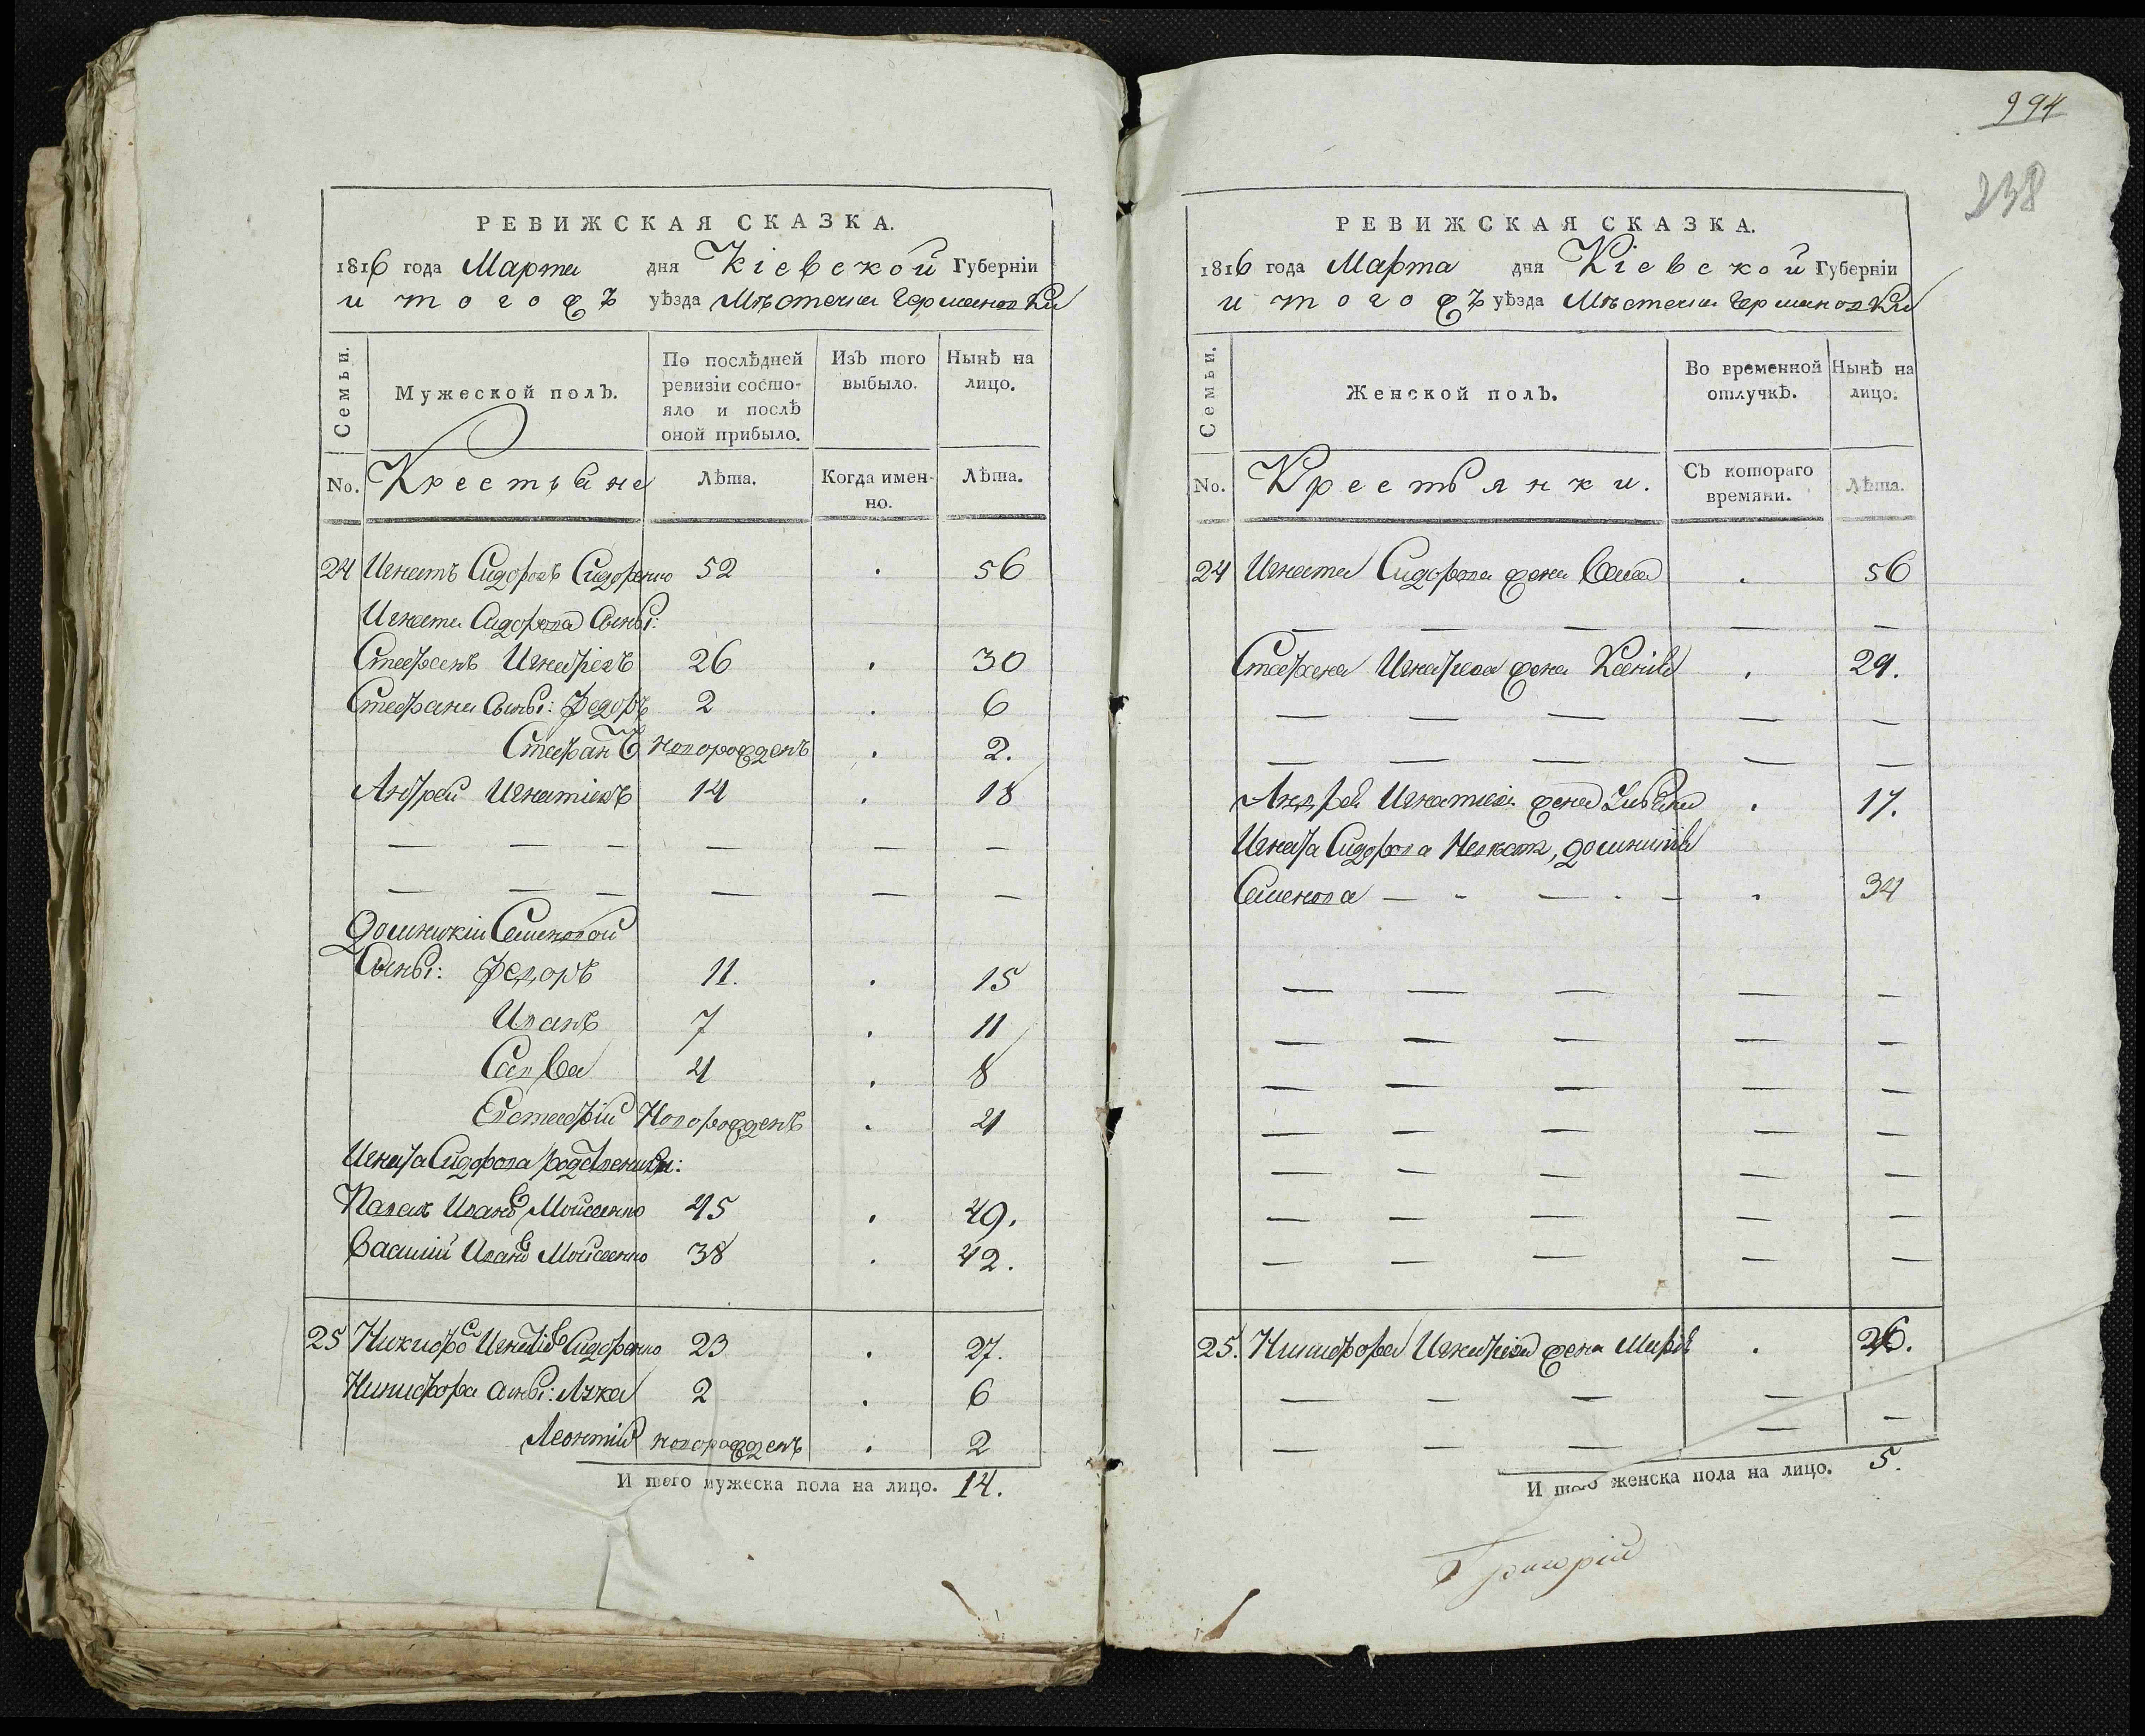 РЕВИЖСКАЯ СКАЗКА.
1816 года Марта дня Кіевской Губерніи
и тогожъ уѣзда Мѣстечка Германовки
Семьи.
Мужеской полъ.
По послѣдней ревизіи состояло и послѣ оной прибыло.
Изъ того выбыло.
Нынѣ на лицо.
No. Крестьяне Лѣта. Когда именно. Лѣта.
24 Игнатъ Сидоровъ Сидоренко 52 . 56
Игната Сидорова сыны:
Стефанъ Игнатіевъ 26 . 30
Стефана сыны: Федоръ 2 . 6
Стефанъ новорожденъ . 2.
Андрей Игнатіевъ 14 . 18
— — — — — —
— — — — — —
Доминикіи Семеновой
Сыны: Федоръ 11. . 15
Иванъ 7 . 11
Савва 4 . 8
Евстафій Новорожденъ . 4
Игната Сидорова родственники:
Павелъ Ивановъ Мойсеенко 45 . 49.
Василий Ивановъ Мойсеенко 38 . 42.
25 Никифоръ Игнатіевъ Сидоренко 23 . 27.
Никифора сыны: Лука 2 . 6
Леонтій новорожденъ . 2
И того мужеска пола на лицо. 14.
994
238
РЕВИЖСКАЯ СКАЗКА.
1816 года Марта дня Кіевской Губерніи
и тогожъ уѣзда Мѣстечка Германовки
Семьи.
Женской полъ.
Во временной отлучкѣ.
Нынѣ на лицо.
No. Крестьянки. Съ котораго времяни. Лѣта.
24 Игната Сидорова жена . 56
— — — — —
Стефана Игнатіева жена Ксенія . 29.
— — — — —
— — — — —
Андрея Игнатіева жена . 17.
Игната Сидорова Невѣстка, Доминикія
Семенова — - — . — . 34
— — — — —
— — — — —
— — — — —
— — — — —
— — — — —
— — — — —
— — — — —
25. Никифора Игнатіева жена Марія . 26.
— — — — —
— — — — —
И того женска пола на лицо. 5.
Григорій